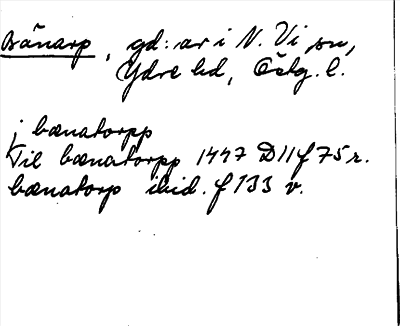 Bänarp, gd: ar i N. Vi sn,
Ydre hd, Östg. l.
j bænatorpp
Til bænatorpp 1447 D11 f 75 r.
bænatorp ibid. f 133 v.